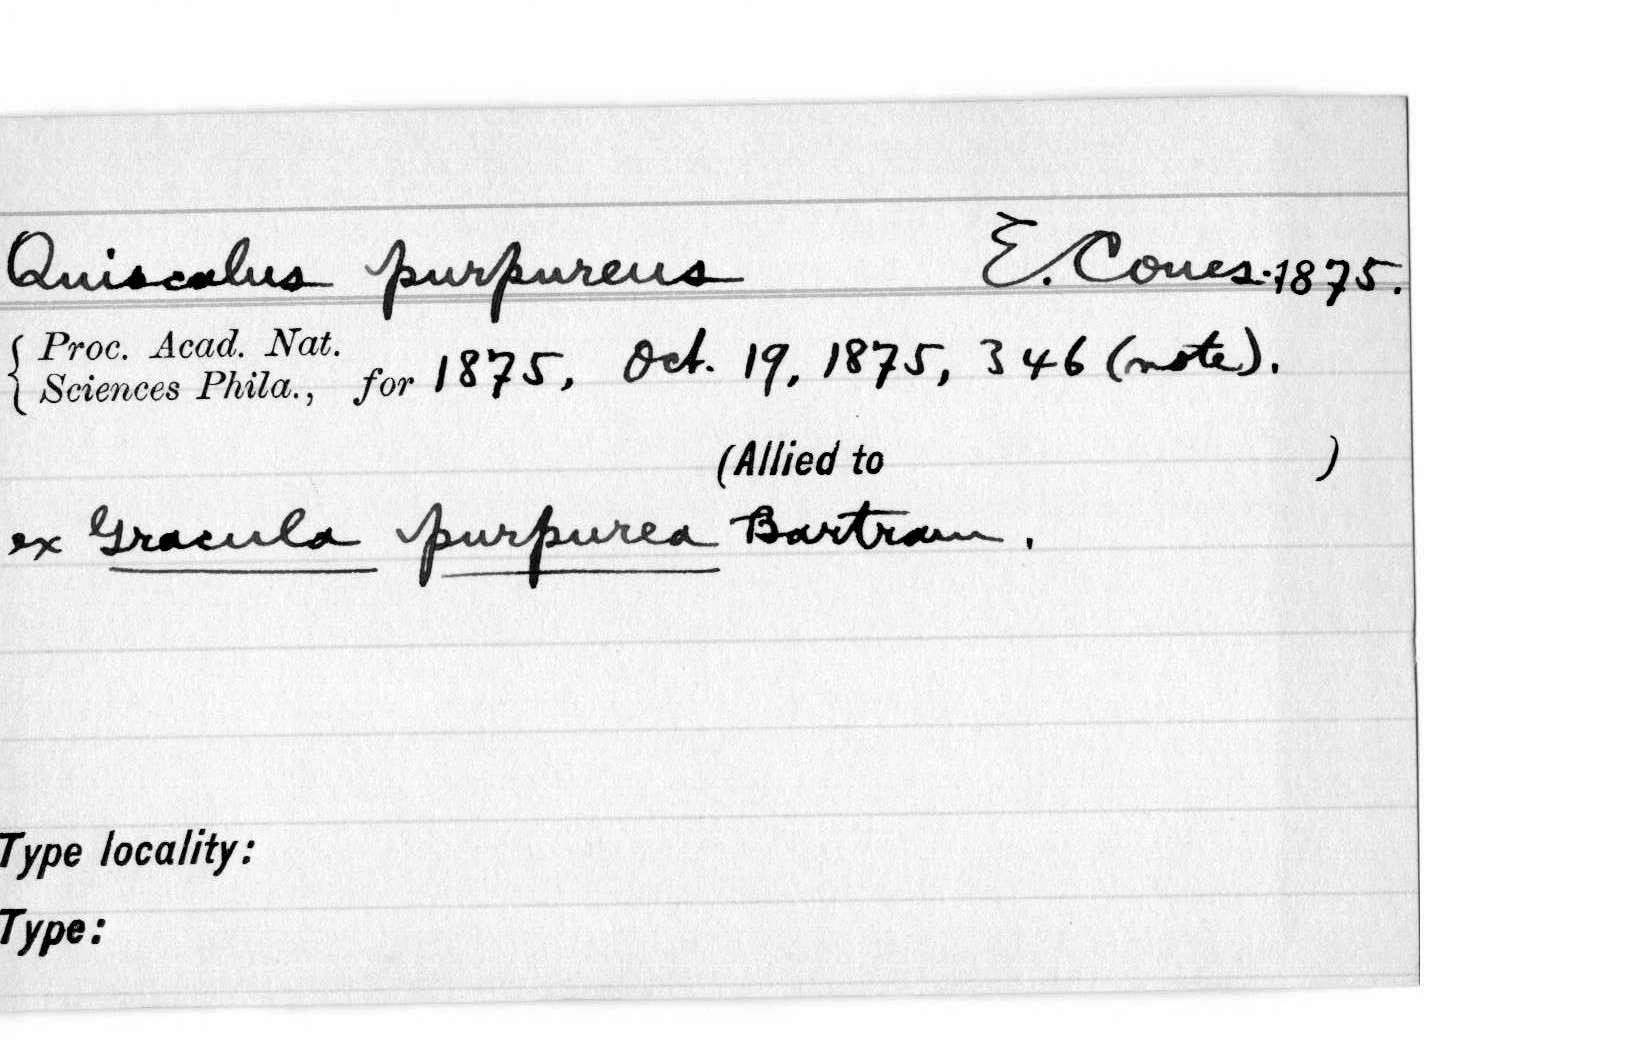 Quiscalus purpureus E. Coues. 1875.
Proc. Acad. Nat.
Sciences Phila., for 1875, Oct. 19, 1875, 346 (note).
(Allied to )
ex Gracula purpurea Bartram.
Type locality:
Type: